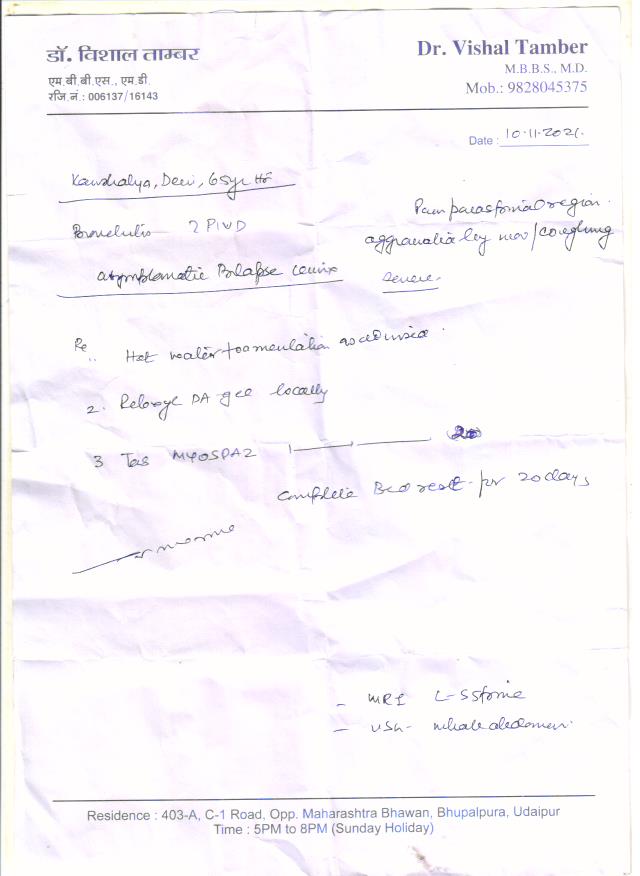 डॉ. विशाल ताम्बर
एम.बी.बी.एस., एम.डी.
रजि.नं.: 006137/16143
Dr. Vishal Tamber
M.B.B.S., M.D.
Mob.: 9828045375
Date : 10.11.2021.
Kaushalya, Devi, 65yr
? PIVD
Asymptomatic Prolapse cervix
Pain region.
aggravation by mov/coughing
severe.
Hot water fomentation as advised.
2. DA gel locally
3 Tab MYOSPAZ 1
Complete Bed rest for 20 days
- MRI L-S Spine
- USG- whole abdomen.
Residence : 403-A, C-1 Road, Opp. Maharashtra Bhawan, Bhupalpura, Udaipur
Time : 5PM to 8PM (Sunday Holiday)